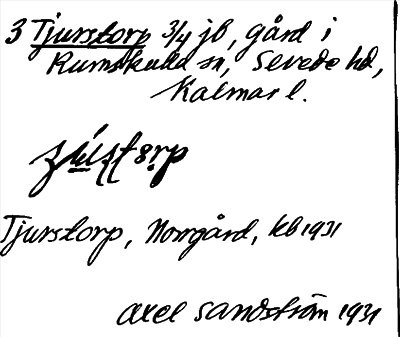 3 Tjurstorp 3/4 jb, gård i
Rumskulla sn, Sevede hd,
Kalmar l.
Tjurstorp, Norrgård, kb 1931
Axel Sandström 1931